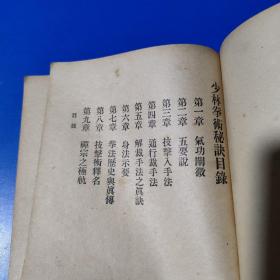 少林拳術秘訣目錄
第一章 氣功闡微
第二章 五要說
第三章 技擊入手法
第四章 通行裁手法
第五章 解裁手法之眞訣
第六章 身法示要
第七章 拳法歷史與眞傳
第八章 技擊術釋名
第九章 禪宗之極軌
目錄